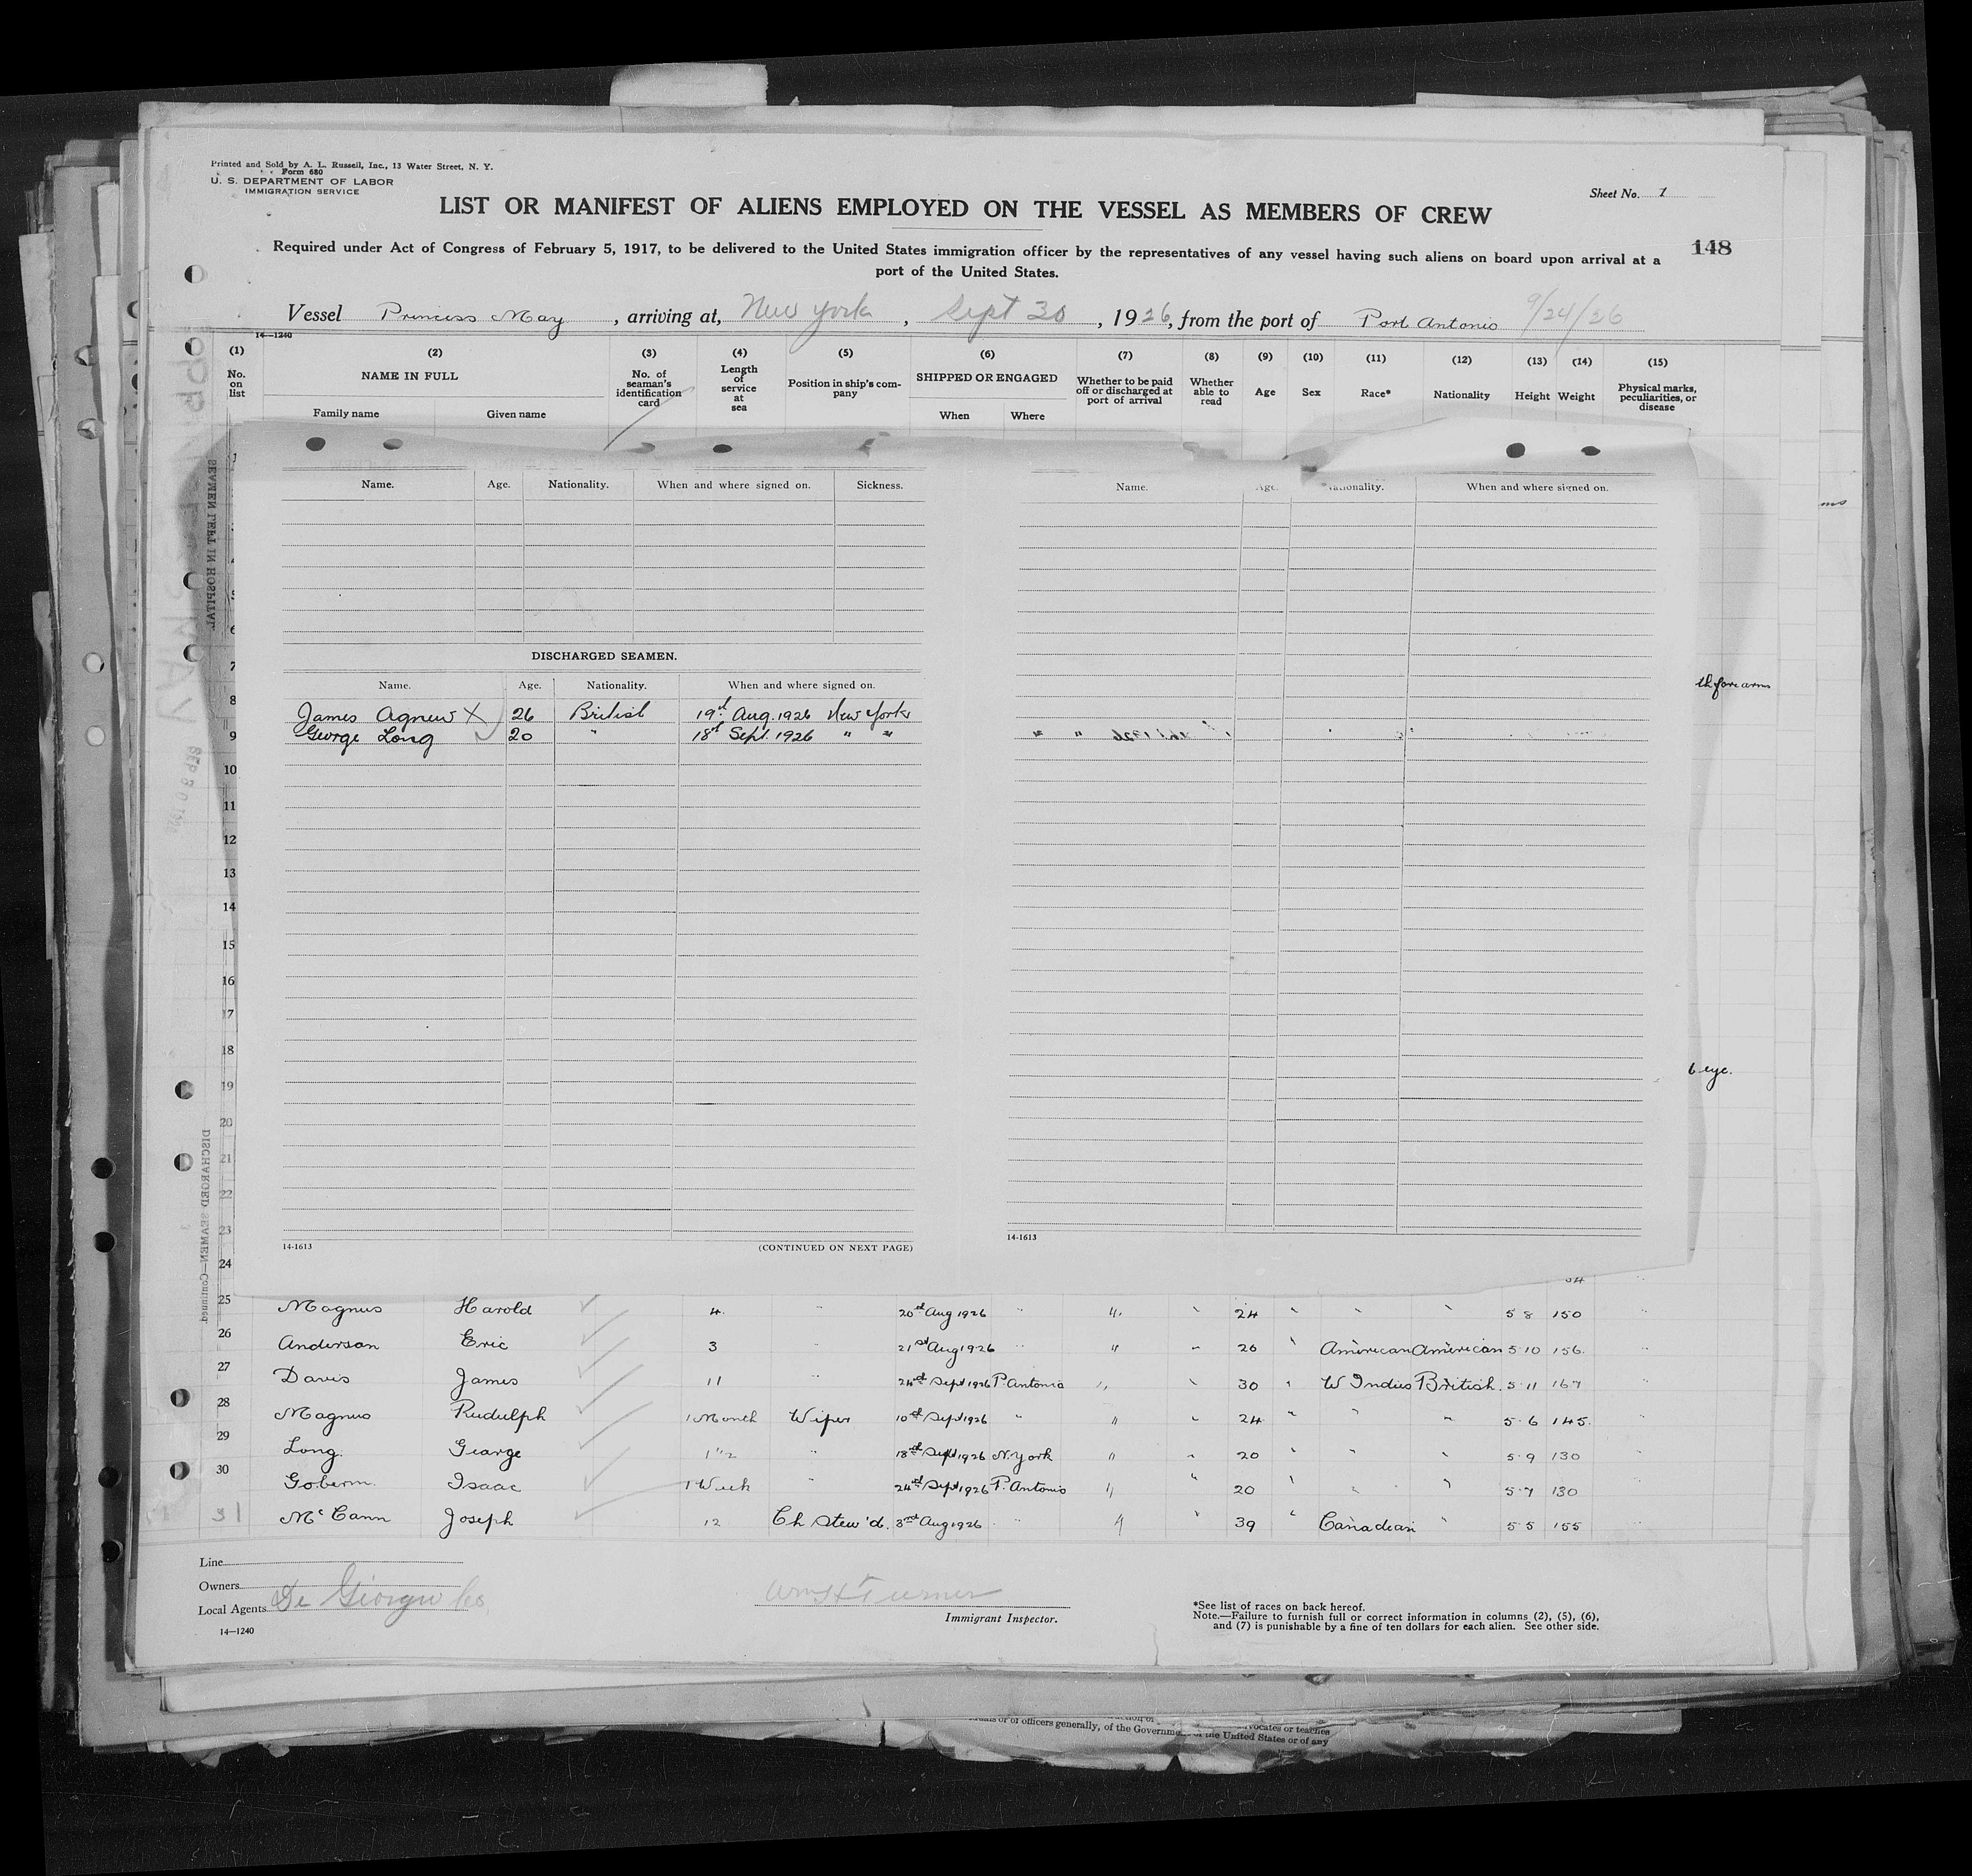 Printed and Sold by A. L. Russell, Inc., 13 Water Street, N. Y.
Form 680
U. S. DEPARTMENT OF LABOR
IMMIGRATION SERVICE
Sheet No. 1
LIST OR MANIFEST OF ALIENS EMPLOYED ON THE VESSEL AS MEMBERS OF CREW
148
Required under Act of Congress of February 5, 1917, to be delivered to the United States immigration officer by the representatives of any vessel having such aliens on board upon arrival at a
port of the United States.
Vessel Princess May, arriving at, New York, Sept 30, 1926, from the port of Port Antonio 9/24/26
14—1240
(1) No. on list
(2) NAME IN FULL Family name Given name
(3) No. of seaman's identification card
(4) Length of service at sea
(5) Position in ship's company
(6) SHIPPED OR ENGAGED When Where
(7) Whether to be paid off or discharged at port of arrival
(8) Whether able to read
(9) Age
(10) Sex
(11) Race*
(12) Nationality
(13) Height
(14) Weight
(15) Physical marks, peculiarities, or disease
SEAMEN LEFT IN HOSPITAL
Name. Age. Nationality. When and where signed on. Sickness.
Name. Age. Nationality. When and where signed on.
DISCHARGED SEAMEN.
Name. Age. Nationality. When and where signed on.
James Agnew X 26 British 19th Aug. 1926 New York
George Long 20 " 18th Sept. 1926 " "
th forearms
eye.
7
8
9
10
11
12
13
14
15
16
17
18
19
20
21
22
23
24
SEP 30 1926
DISCHARGED SEAMEN—Continued
14-1613 (CONTINUED ON NEXT PAGE)
14-1613
25 Magnus Harold 4 " 20th Aug 1926 " " " 24 " " " 5 8 150 "
26 Anderson Eric 3 " 21st Aug 1926 " " " 26 " American American 5 10 156 "
27 Davis James 11 " 24th Sept 1926 P. Antonio " " 30 " W Indies British 5 11 167 "
28 Magnus Rudulph 1 Month Wiper 10th Sept 1926 " " " 24 " " " 5 6 145 "
29 Long George 1 1/2 " 18th Sept 1926 N. York " " 20 " " " 5 9 130 "
30 Isaac 1 Week " 24th Sept 1926 P. Antonio " " 20 " " " 5 7 130 "
31 McCann Joseph 12 Ch Stew'd. 3rd Aug 1926 " " " 39 " Canadian " 5 5 155 "
Line
Owners
Local Agents De Giorgio Co
Wm H Turner
Immigrant Inspector.
14—1240
*See list of races on back hereof.
Note.—Failure to furnish full or correct information in columns (2), (5), (6),
and (7) is punishable by a fine of ten dollars for each alien. See other side.
or of officers generally, of the Government of the United States or of any